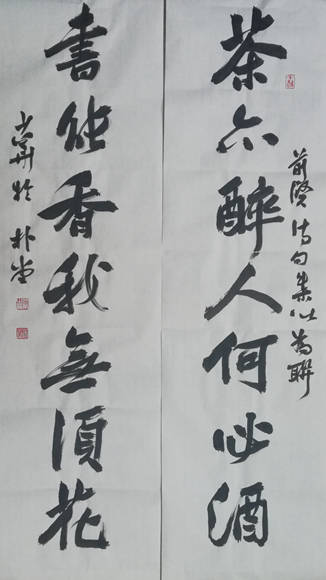 茶亦醉人何必酒
前贤诗句集以为联
書能香我無須花
于朴堂